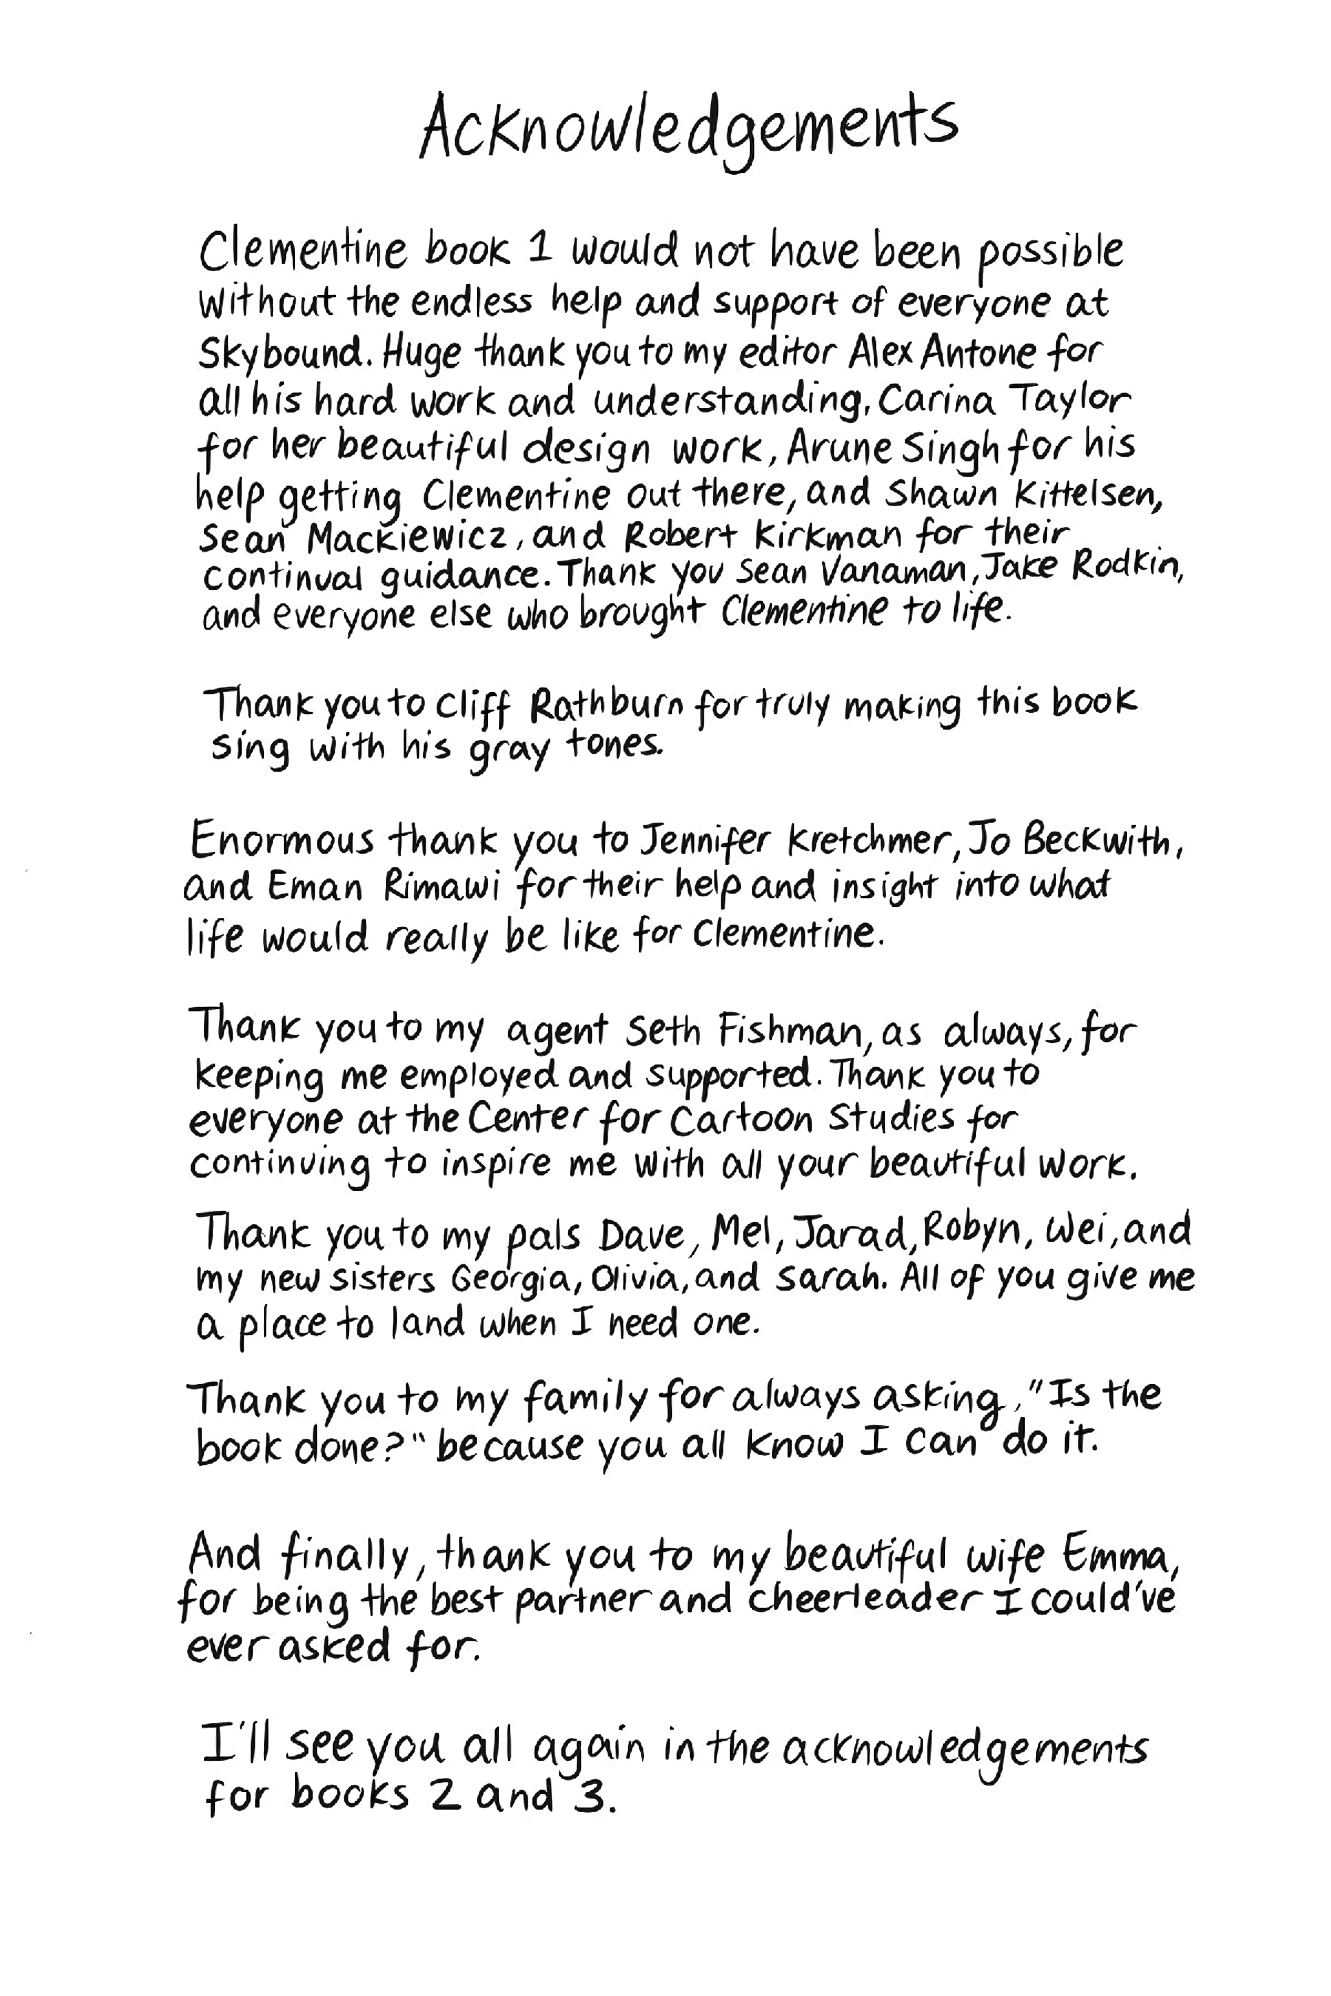 Acknowledgements
Clementine book 1 would not have been possible
without the endless help and support of everyone at
Skybound. Huge thank you to my editor Alex Antone for
all his hard work and understanding, Carina Taylor
for her beautiful design work, Arune Singh for his
help getting Clementine out there, and Shawn Kittelsen,
Sean Mackiewicz, and Robert Kirkman for their
continual guidance. Thank you Sean Vanaman, Jake Rodkin,
and everyone else who brought Clementine to life.
Thank you to Cliff Rathburn for truly making this book
sing with his gray tones.
Enormous thank you to Jennifer Kretchmer, Jo Beckwith,
and Eman Rimawi for their help and insight into what
life would really be like for Clementine.
Thank you to my agent Seth Fishman, as always, for
keeping me employed and supported. Thank you to
everyone at the Center for Cartoon Studies for
continuing to inspire me with all your beautiful work.
Thank you to my pals Dave, Mel, Jarad, Robyn, Wei, and
my new sisters Georgia, Olivia, and Sarah. All of you give me
a place to land when I need one.
Thank you to my family for always asking, "Is the
book done?" because you all know I can do it.
And finally, thank you to my beautiful wife Emma,
for being the best partner and cheerleader I could've
ever asked for.
I'll see you all again in the acknowledgements
for books 2 and 3.